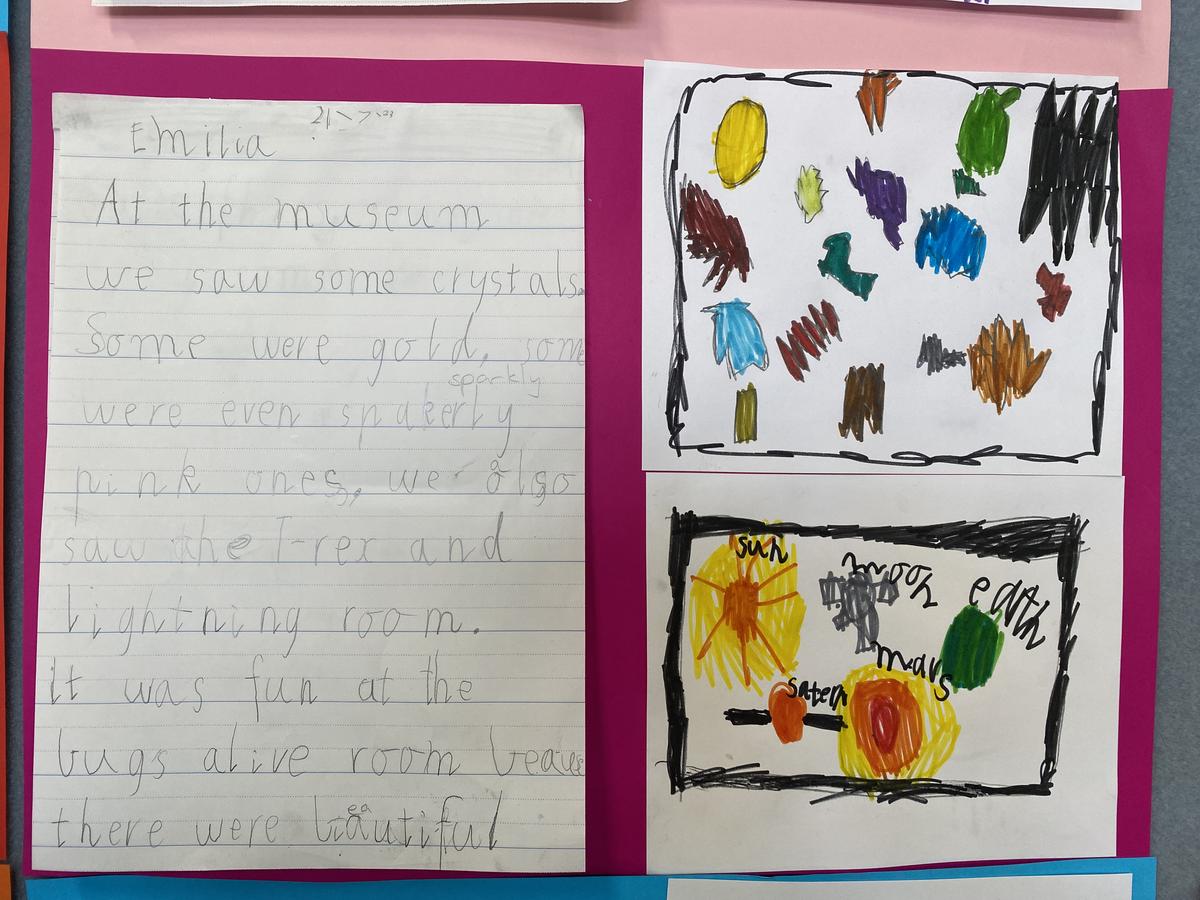 Emilia
At the museum
we saw some crystals.
Some were gold, some
sparkly
were even spakerly
pink ones, we also
saw the T-rex and
lightning room.
it was fun at the
bugs alive room
there were beautiful
sun
moon
eath
mars
satern